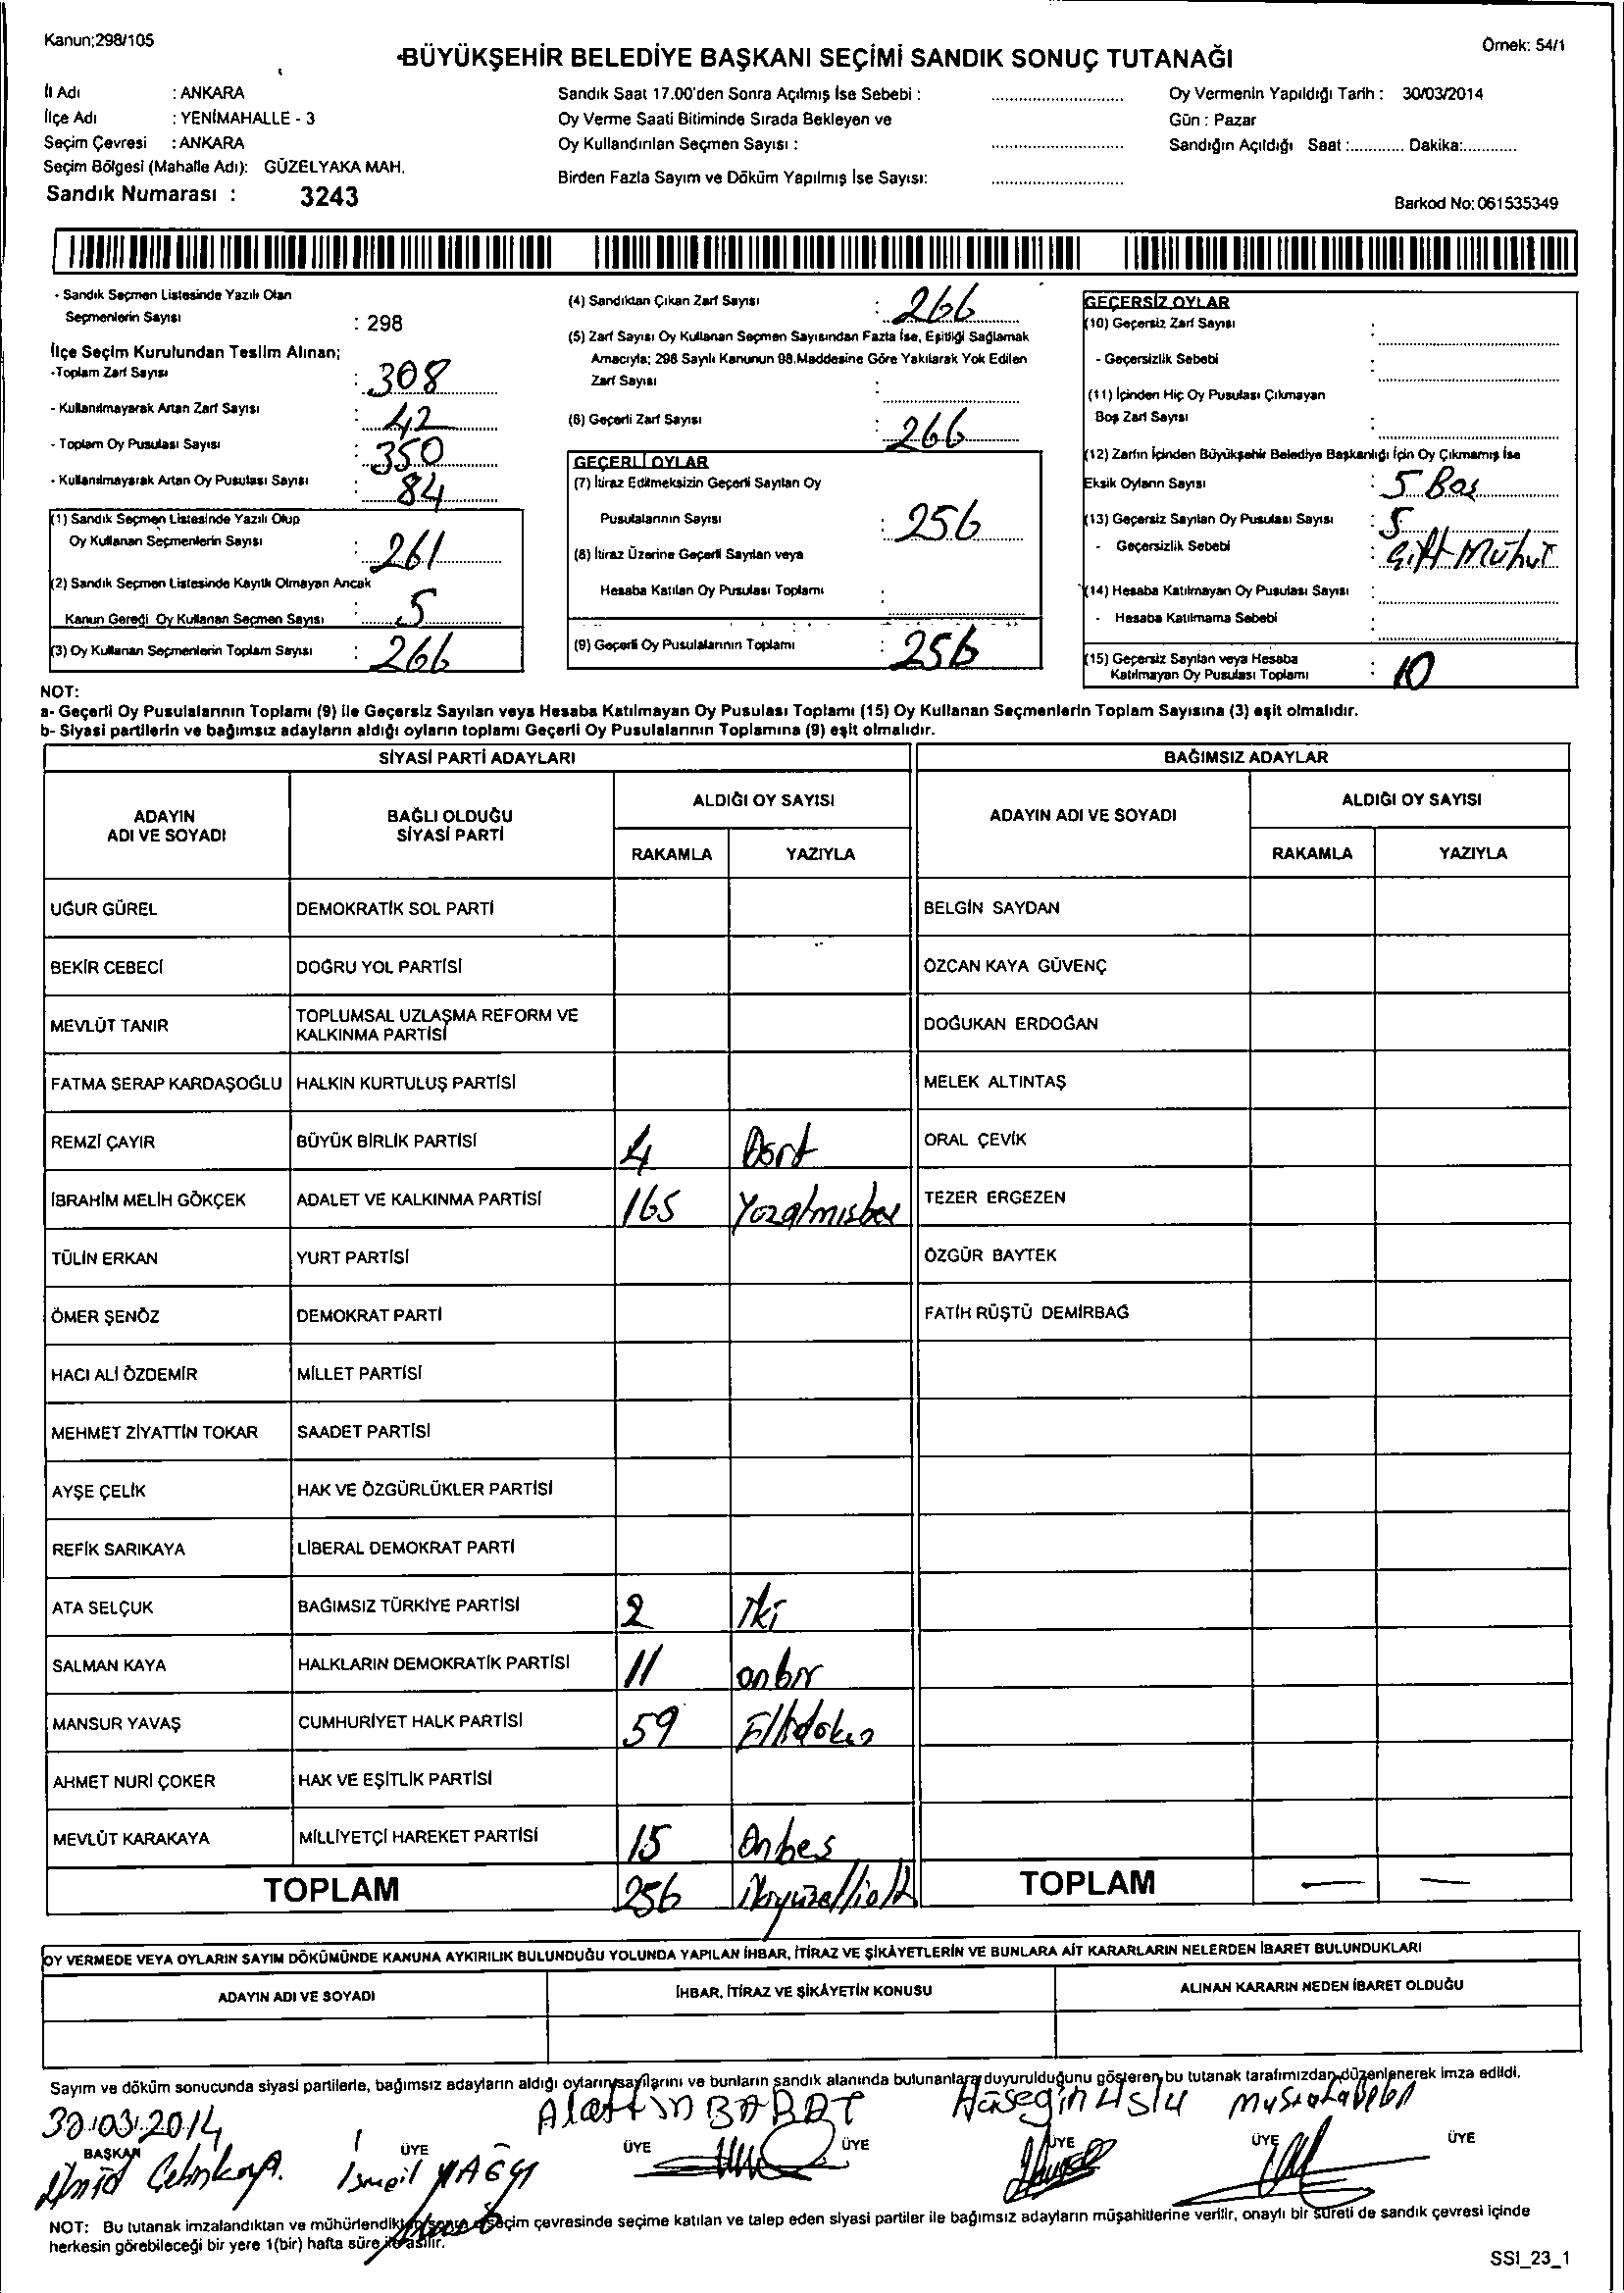 Kanun;298/105
Örnek: 54/1
BÜYÜKŞEHİR BELEDİYE BAŞKANI SEÇİMİ SANDIK SONUÇ TUTANAĞI
İl Adı : ANKARA
İlçe Adı : YENİMAHALLE - 3
Seçim Çevresi : ANKARA
Seçim Bölgesi (Mahalle Adı): GÜZELYAKA MAH.
Sandık Numarası : 3243
Sandık Saat 17.00'den Sonra Açılmış İse Sebebi :
Oy Verme Saati Bitiminde Sırada Bekleyen ve
Oy Kullandırılan Seçmen Sayısı :
Birden Fazla Sayım ve Döküm Yapılmış İse Sayısı:
Oy Vermenin Yapıldığı Tarih : 30/03/2014
Gün : Pazar
Sandığın Açıldığı Saat :............ Dakika:............
Barkod No: 061535349
- Sandık Seçmen Listesinde Yazılı Olan
Seçmenlerin Sayısı : 298
İlçe Seçim Kurulundan Teslim Alınan;
-Toplam Zarf Sayısı : 308
- Kullanılmayarak Artan Zarf Sayısı : 42
- Toplam Oy Pusulası Sayısı : 350
- Kullanılmayarak Artan Oy Pusulası Sayısı : 84
(1) Sandık Seçmen Listesinde Yazılı Olup
Oy Kullanan Seçmenlerin Sayısı : 261
(2) Sandık Seçmen Listesinde Kayıtlı Olmayan Ancak
Kanun Gereği Oy Kullanan Seçmen Sayısı : 5
(3) Oy Kullanan Seçmenlerin Toplam Sayısı : 266
(4) Sandıktan Çıkan Zarf Sayısı : 266
(5) Zarf Sayısı Oy Kullanan Seçmen Sayısından Fazla İse, Eşitliği Sağlamak
Amacıyla; 298 Sayılı Kanunun 98.Maddesine Göre Yakılarak Yok Edilen
Zarf Sayısı :
(6) Geçerli Zarf Sayısı : 266
GEÇERLİ OYLAR
(7) İtiraz Edilmeksizin Geçerli Sayılan Oy
Pusulalarının Sayısı : 256
(8) İtiraz Üzerine Geçerli Sayılan veya
Hesaba Katılan Oy Pusulası Toplamı :
(9) Geçerli Oy Pusulalarının Toplamı : 256
GEÇERSİZ OYLAR
(10) Geçersiz Zarf Sayısı :
- Geçersizlik Sebebi :
(11) İçinden Hiç Oy Pusulası Çıkmayan
Boş Zarf Sayısı :
(12) Zarfın İçinden Büyükşehir Belediye Başkanlığı İçin Oy Çıkmamış İse
Eksik Oyların Sayısı : 5 Boş
(13) Geçersiz Sayılan Oy Pusulası Sayısı : 5
- Geçersizlik Sebebi : Çift Mühür
(14) Hesaba Katılmayan Oy Pusulası Sayısı :
- Hesaba Katılmama Sebebi :
(15) Geçersiz Sayılan veya Hesaba
Katılmayan Oy Pusulası Toplamı : 10
NOT:
a- Geçerli Oy Pusulalarının Toplamı (9) ile Geçersiz Sayılan veya Hesaba Katılmayan Oy Pusulası Toplamı (15) Oy Kullanan Seçmenlerin Toplam Sayısına (3) eşit olmalıdır.
b- Siyasi partilerin ve bağımsız adayların aldığı oyların toplamı Geçerli Oy Pusulalarının Toplamına (9) eşit olmalıdır.
SİYASİ PARTİ ADAYLARI BAĞIMSIZ ADAYLAR
ADAYIN ADI VE SOYADI BAĞLI OLDUĞU SİYASİ PARTİ ALDIĞI OY SAYISI ADAYIN ADI VE SOYADI ALDIĞI OY SAYISI
RAKAMLA YAZIYLA RAKAMLA YAZIYLA
UĞUR GÜREL DEMOKRATİK SOL PARTİ BELGİN SAYDAN
BEKİR CEBECİ DOĞRU YOL PARTİSİ ÖZCAN KAYA GÜVENÇ
MEVLÜT TANIR TOPLUMSAL UZLAŞMA REFORM VE KALKINMA PARTİSİ DOĞUKAN ERDOĞAN
FATMA SERAP KARDAŞOĞLU HALKIN KURTULUŞ PARTİSİ MELEK ALTINTAŞ
REMZİ ÇAYIR BÜYÜK BİRLİK PARTİSİ 4 Dört ORAL ÇEVİK
İBRAHİM MELİH GÖKÇEK ADALET VE KALKINMA PARTİSİ 165 Yüzatmışbeş TEZER ERGEZEN
TÜLİN ERKAN YURT PARTİSİ ÖZGÜR BAYTEK
ÖMER ŞENÖZ DEMOKRAT PARTİ FATİH RÜŞTÜ DEMİRBAĞ
HACI ALİ ÖZDEMİR MİLLET PARTİSİ
MEHMET ZİYATTİN TOKAR SAADET PARTİSİ
AYŞE ÇELİK HAK VE ÖZGÜRLÜKLER PARTİSİ
REFİK SARIKAYA LİBERAL DEMOKRAT PARTİ
ATA SELÇUK BAĞIMSIZ TÜRKİYE PARTİSİ 2 İki
SALMAN KAYA HALKLARIN DEMOKRATİK PARTİSİ 11 onbir
MANSUR YAVAŞ CUMHURİYET HALK PARTİSİ 59 Ellidokuz
AHMET NURİ ÇOKER HAK VE EŞİTLİK PARTİSİ
MEVLÜT KARAKAYA MİLLİYETÇİ HAREKET PARTİSİ 15 Onbeş
TOPLAM 256 ikiyüzellialtı TOPLAM — —
OY VERMEDE VEYA OYLARIN SAYIM DÖKÜMÜNDE KANUNA AYKIRILIK BULUNDUĞU YOLUNDA YAPILAN İHBAR, İTİRAZ VE ŞİKÂYETLERİN VE BUNLARA AİT KARARLARIN NELERDEN İBARET BULUNDUKLARI
ADAYIN ADI VE SOYADI İHBAR, İTİRAZ VE ŞİKÂYETİN KONUSU ALINAN KARARIN NEDEN İBARET OLDUĞU
Sayım ve döküm sonucunda siyasi partilerle, bağımsız adayların aldığı oyların sayılarını ve bunların sandık alanında bulunanlara duyurulduğunu gösteren bu tutanak tarafımızdan düzenlenerek imza edildi.
30.03.2014 Alattin Hüseyin Uslu
BAŞKAN ÜYE ÜYE ÜYE ÜYE ÜYE ÜYE
Ümit Çetinkaya İsmail YAĞCI
NOT: Bu tutanak imzalandıktan ve mühürlendikten sonra seçim çevresinde seçime katılan ve talep eden siyasi partiler ile bağımsız adayların müşahitlerine verilir, onaylı bir sureti de sandık çevresi içinde
herkesin görebileceği bir yere 1(bir) hafta süre ile asılır.
SSI_23_1